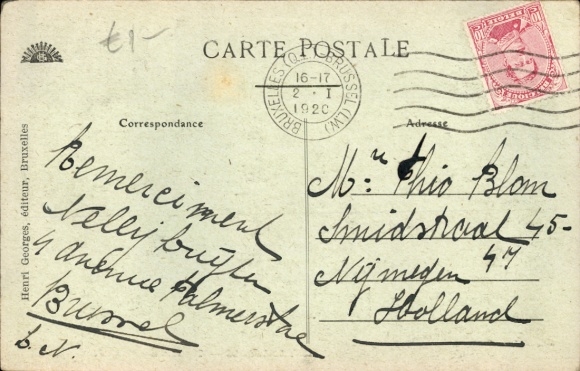 €1-
CARTE POSTALE
BRUXELLES (Q.L.) BRUSSEL (L.W.)
16-17
2 · I
1920
BELGIQUE
10
Correspondance
Adresse
Remerciment
Nelly
4 avenue Palmerston
Brussel
b. N.
Mr. Theo Blom
Smidstraat 45-
47
Nÿmegen
Holland
Henri Georges, éditeur, Bruxelles